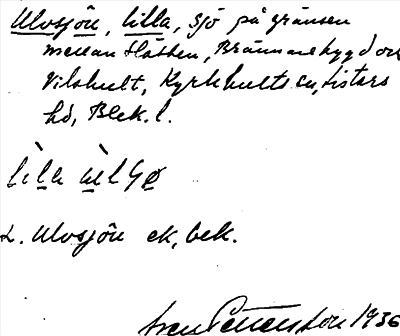 Ulvsjön, lilla, sjö på gränsen
mellan Slätten, Brännarebygd och
Vilshult, Kyrkhults sn, Listers
hd, Blek. l.
L. Ulvsjön ek, bek.
Sven Petersson 1936